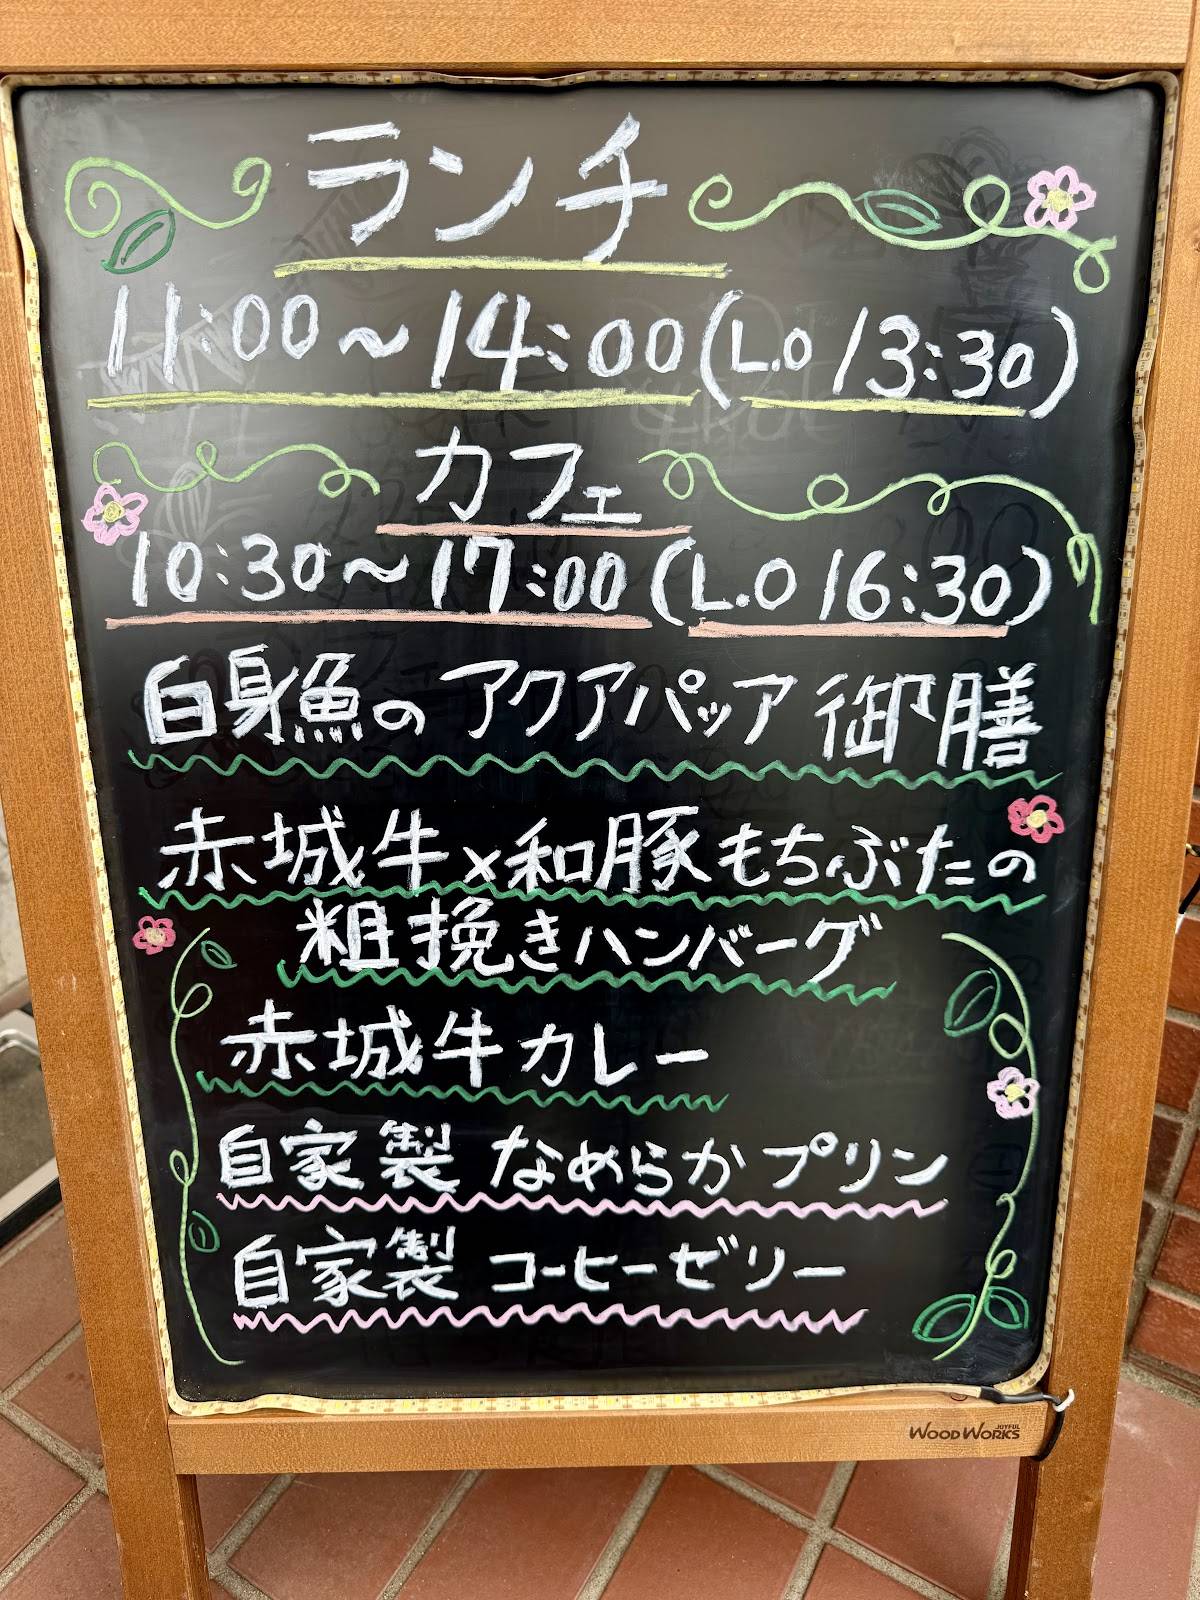 ランチ
11:00〜14:00(L.O 13:30)
カフェ
10:30〜17:00(L.O 16:30)
白身魚のアクアパッツア御膳
赤城牛×和豚もちぶたの
粗挽きハンバーグ
赤城牛カレー
自家製 なめらかプリン
自家製 コーヒーゼリー
JOYFUL
WOODWORKS